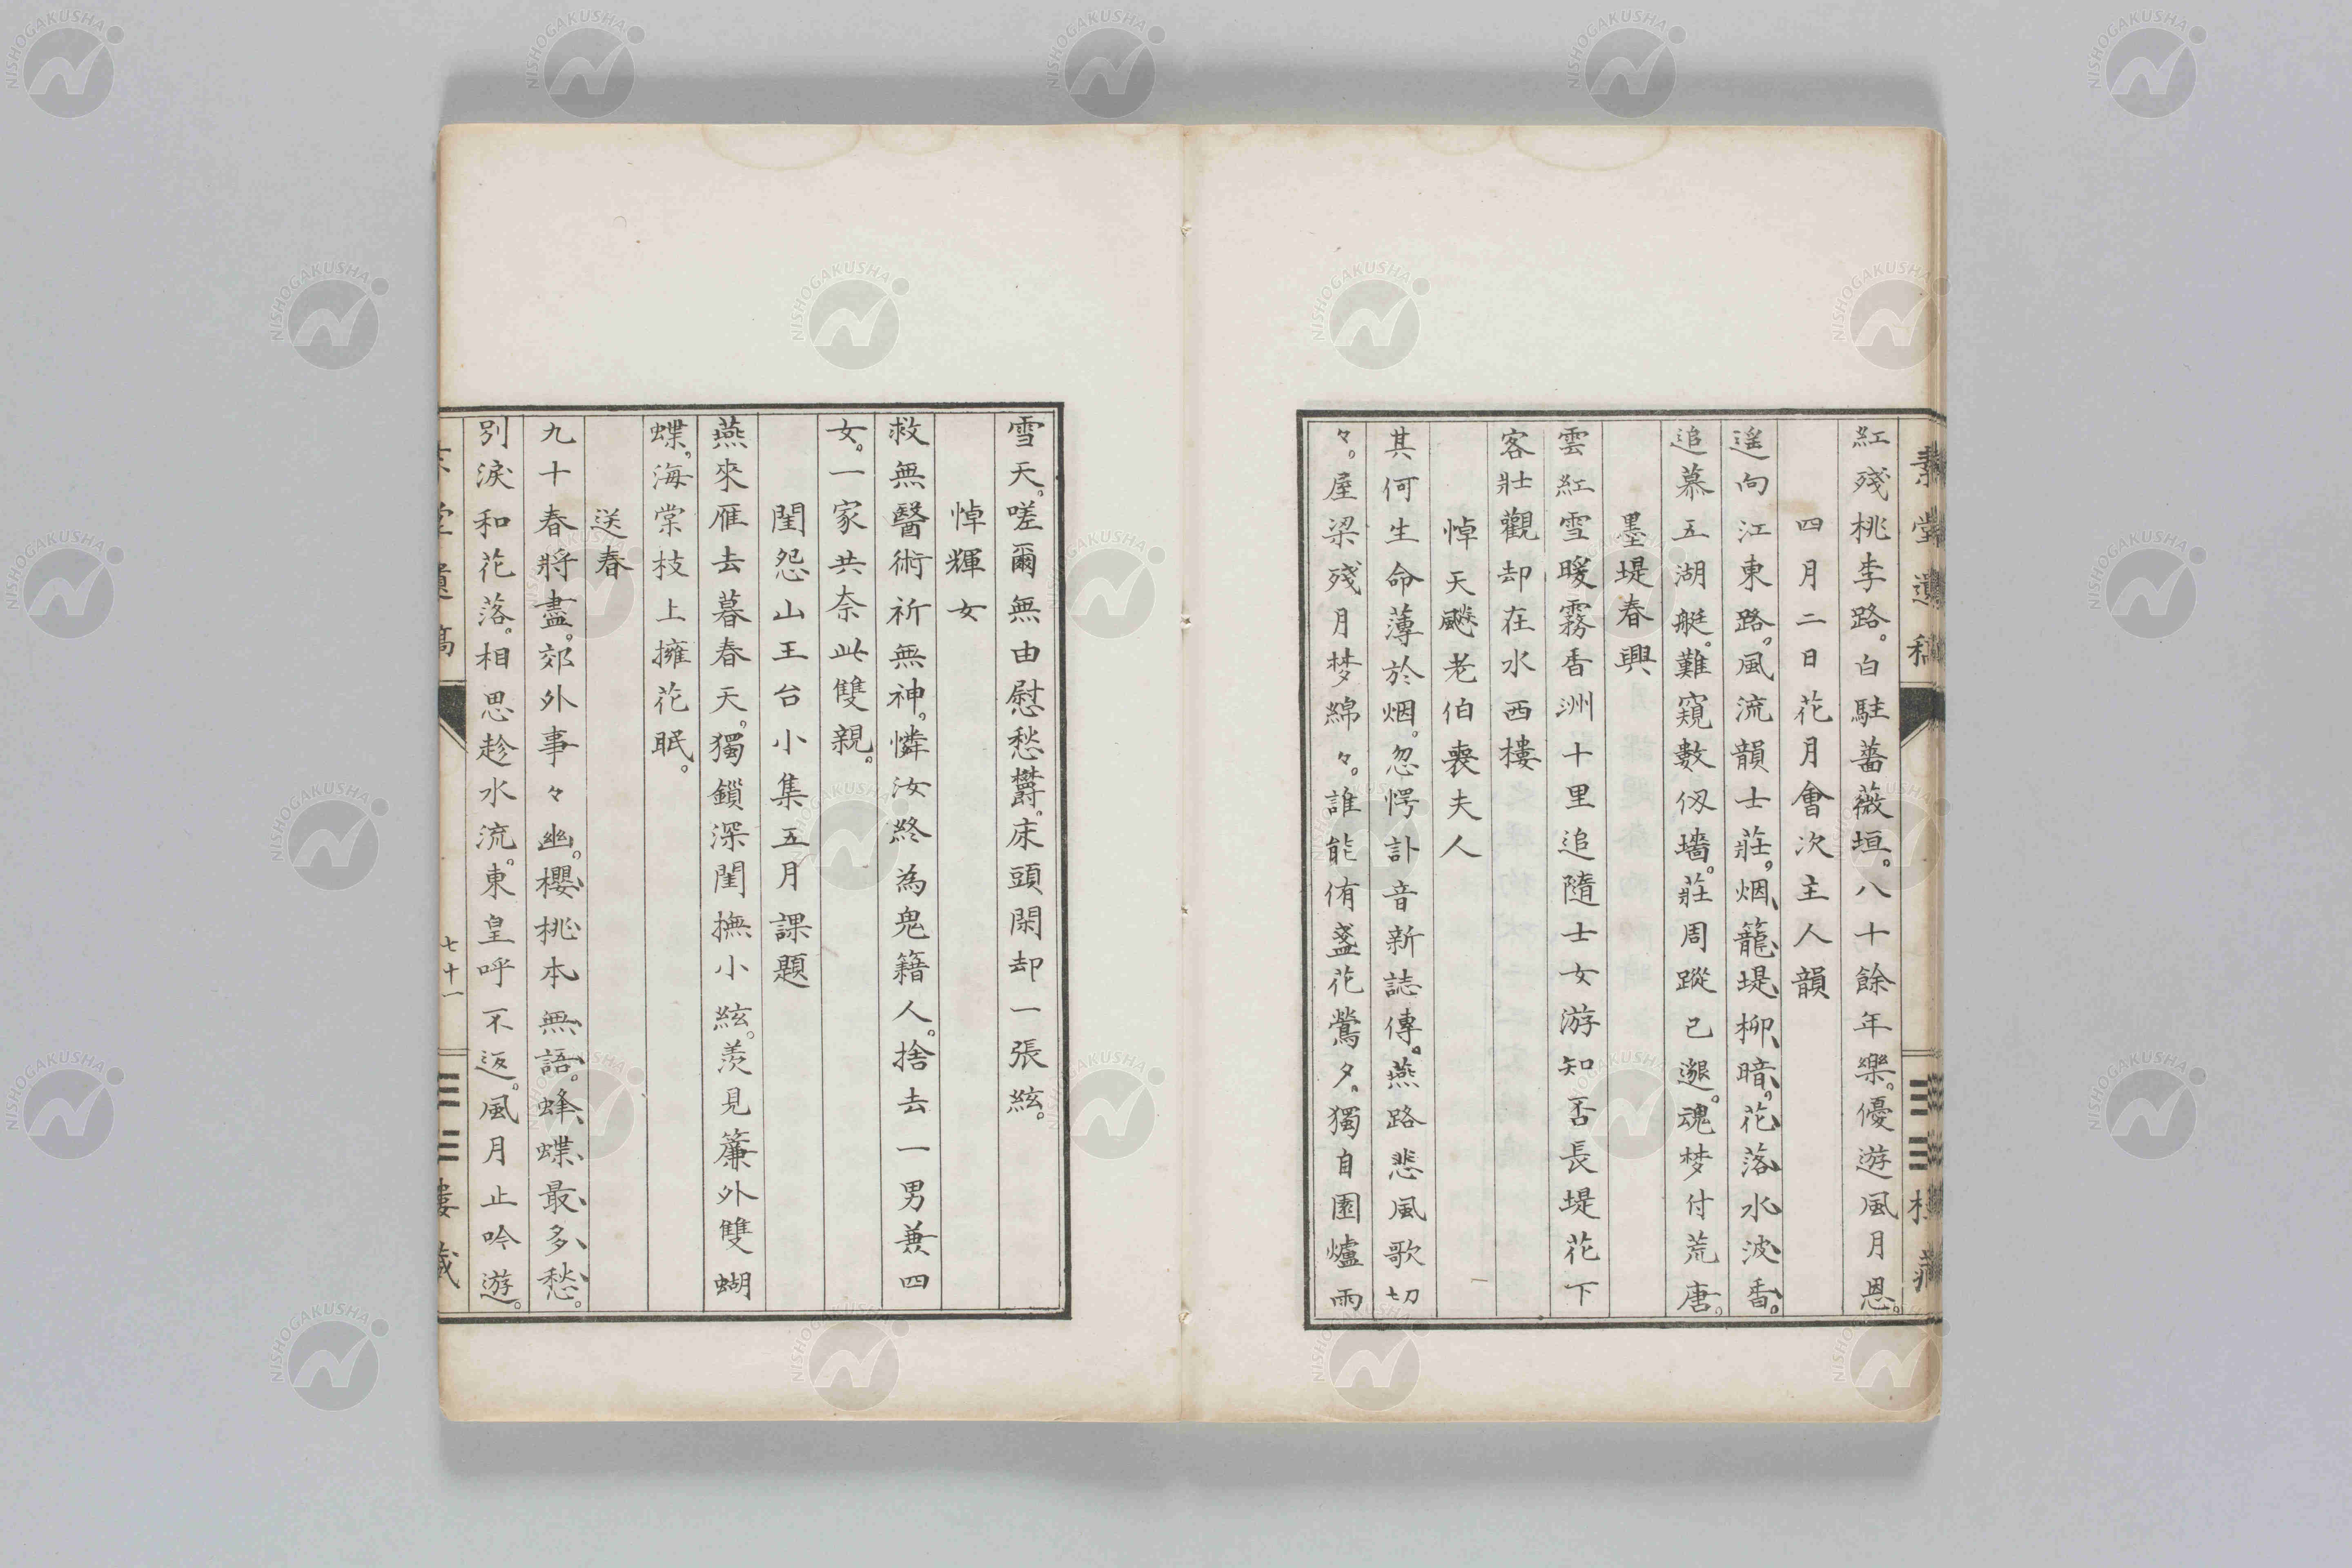 紅殘桃李路。白駐薔薇垣。八十餘年樂。優遊風月恩。
四月二日花月會次主人韻
遥向江東路。風流韻士莊。烟籠堤柳暗。花落水波香。
追慕五湖艇。難窺數仭墻。莊周蹤已邈。魂梦付荒唐。
墨堤春興
雲紅雪暖霧香洲十里追隨士女游知否長堤花下
客壯觀却在水西樓
悼天颷老伯喪夫人
其何生命薄於烟。忽愕訃音新誌傳。燕路悲風歌切
々。屋梁殘月梦綿々。誰能侑盞花鶯夕。獨自圍爐雨
雪天。嗟爾無由慰愁欝。床頭閑却一張絃。
悼輝女
救無醫術祈無神。憐汝終為鬼籍人。捨去一男兼四
女。一家共奈此雙親。
閨怨山王台小集五月課題
燕來雁去暮春天。獨鎖深閨撫小絃。羨見簾外雙蝴
蝶。海棠枝上擁花眠。
送春
九十春將盡。郊外事々幽。櫻桃本無語。蜂蝶最多愁。
別淚和花落。相思趁水流。東皇呼不返。風月止吟遊。
七十一
NISHOGAKUSHA